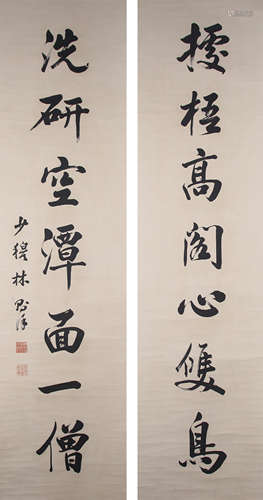 據梧高阁心雙鳥
洗研空潭面一僧
少穆林則徐